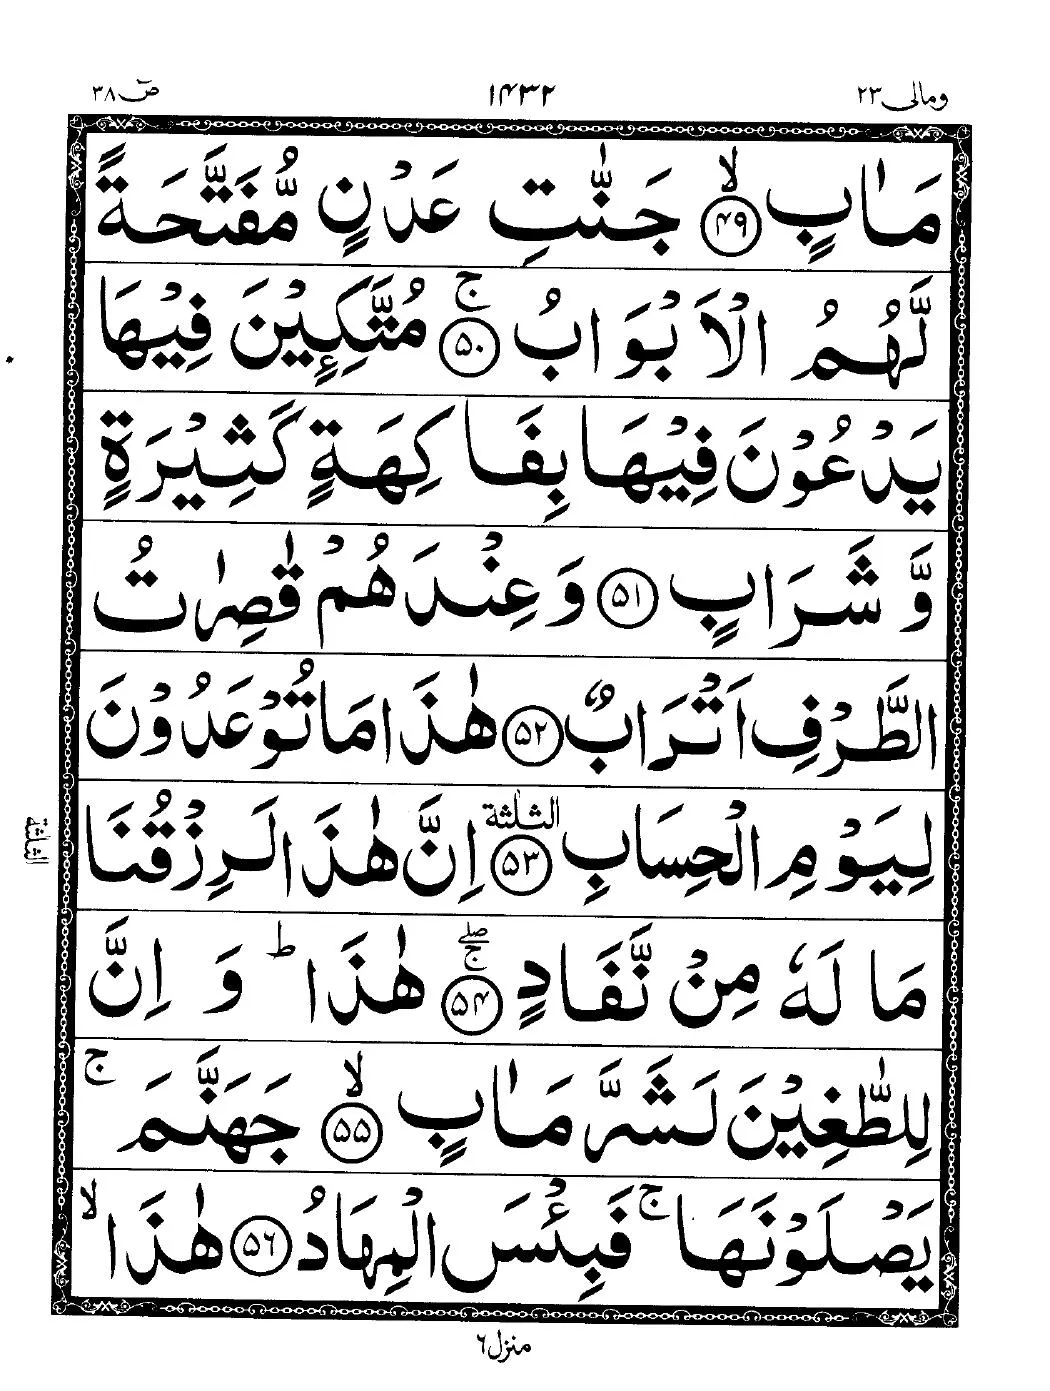 ومالی ٢٣
١٤٣٢
صٓ ٣٨
مَاٰبٍ ﴿٤٩﴾ۙ جَنّٰتِ عَدْنٍ مُّفَتَّحَةً
لَّهُمُ الْاَبْوَابُ ﴿٥٠﴾ۚ مُتَّكِـِٕيْنَ فِيْهَا
يَدْعُوْنَ فِيْهَا بِفَاكِهَةٍ كَثِيْرَةٍ
وَّ شَرَابٍ ﴿٥١﴾ وَعِنْدَهُمْ قٰصِرٰتُ
الطَّرْفِ اَتْرَابٌ ﴿٥٢﴾ هٰذَا مَا تُوْعَدُوْنَ
لِيَوْمِ الْحِسَابِ ﴿٥٣﴾ الثلثة اِنَّ هٰذَا لَرِزْقُنَا
الثلثة
مَا لَهٗ مِنْ نَّفَادٍ ﴿٥٤﴾ صلے ج هٰذَا ؕ وَ اِنَّ
لِلطّٰغِيْنَ لَشَرَّ مَاٰبٍ ﴿٥٥﴾ۙ جَهَنَّمَ ۚ
يَصْلَوْنَهَا ۚ فَبِئْسَ الْمِهَادُ ﴿٥٦﴾ هٰذَا ۙ
منزل ٦